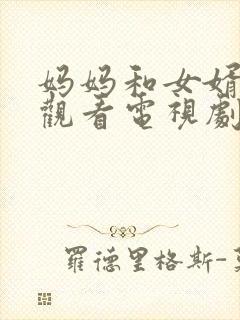 妈妈和女婿
觀看電視劇
羅德里格斯-